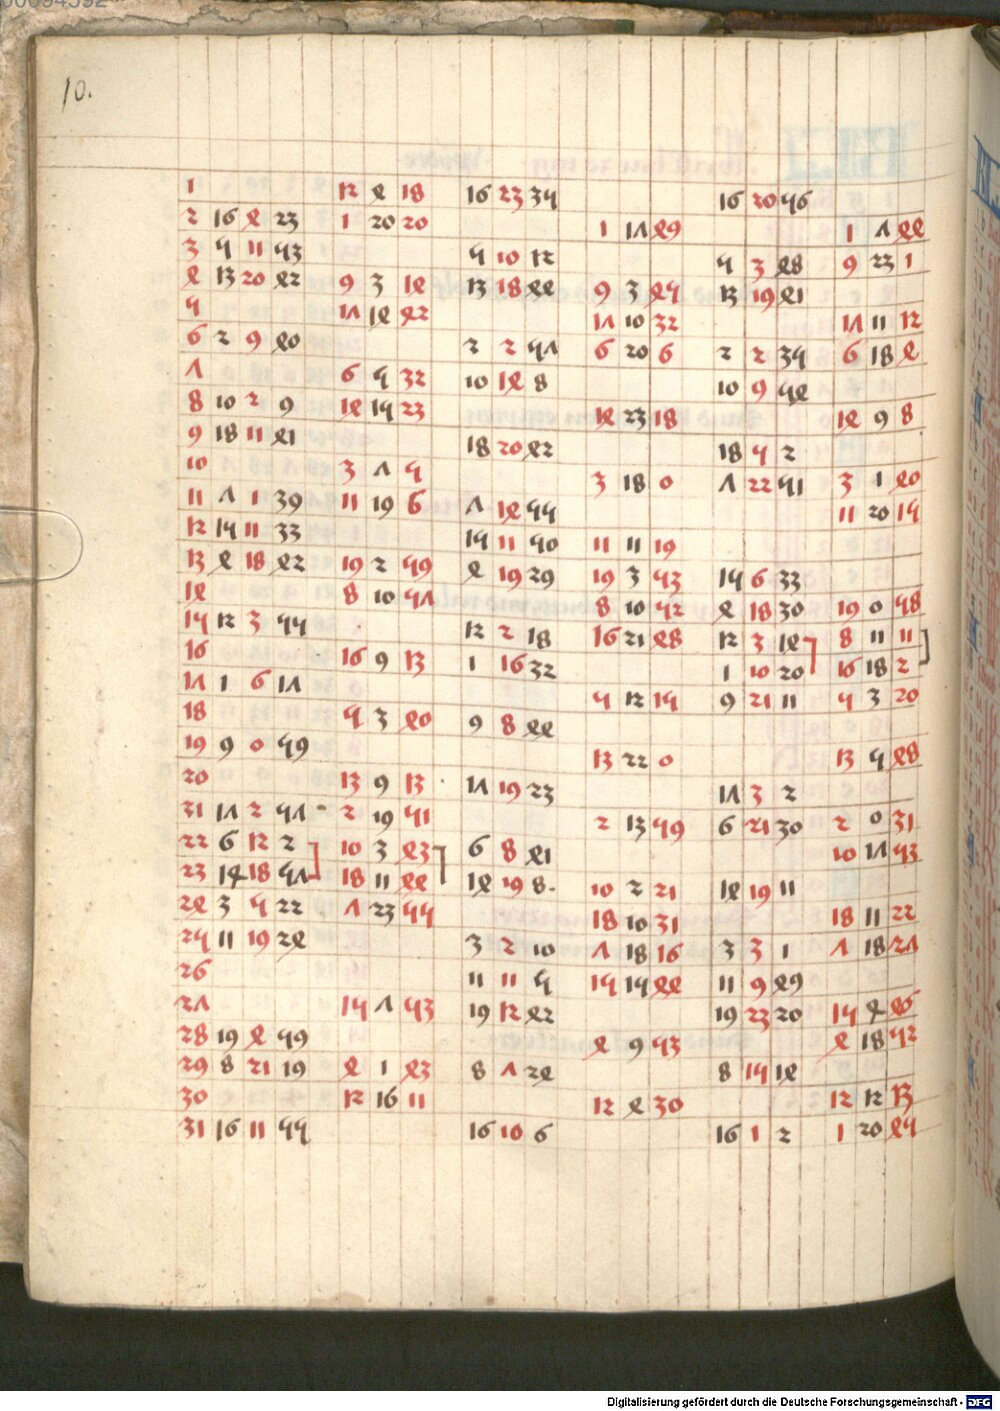 10.
1 12 4 18 16 23 35 16 20 56
2 16 4 23 1 20 20 1 17 49 1 7 44
3 5 11 53 5 10 12 5 3 48 9 23 1
4 13 20 42 9 3 14 13 18 44 9 3 45 13 19 41
5 17 14 42 17 10 32 17 11 12
6 2 9 40 2 2 57 6 20 6 2 2 35 6 18 4
7 6 5 32 10 14 8 10 9 54
8 10 2 9 14 15 23 14 23 18 14 9 8
9 18 11 41 18 20 42 18 5 2
10 3 7 5 3 18 0 7 22 51 3 1 40
11 7 1 39 11 19 6 7 14 55 11 20 15
12 15 11 33 15 11 50 11 11 19
13 4 18 42 19 2 59 4 19 29 19 3 53 15 6 33
14 8 10 57 8 10 52 4 18 30 19 0 58
15 12 3 55 12 2 18 16 21 48 12 3 14 8 11 11
16 16 9 13 1 16 32 1 10 20 16 18 2
17 1 6 17 5 12 15 9 21 11 5 3 20
18 5 3 40 9 8 44
19 9 0 59 13 22 0 13 5 48
20 13 9 13 17 19 23 17 3 2
31 17 2 57 2 19 51 2 13 59 6 21 30 2 0 31
22 6 12 2 10 3 43 6 8 41 10 17 53
23 15 18 57 18 11 44 14 19 8. 10 2 21 14 19 11
24 3 5 22 7 23 55 18 10 31 18 11 22
25 11 19 24 3 2 10 7 18 16 3 3 1 7 18 27
26 11 11 5 15 15 44 11 9 49
27 15 7 53 19 12 42 19 23 20 15 4 46
28 19 4 59 4 9 53 4 18 52
29 8 21 19 4 1 43 8 7 24 8 15 14
30 12 16 11 12 4 30 12 12 13
31 16 11 55 16 10 6 16 1 2 1 20 45
Digitalisierung gefördert durch die Deutsche Forschungsgemeinschaft - DFG